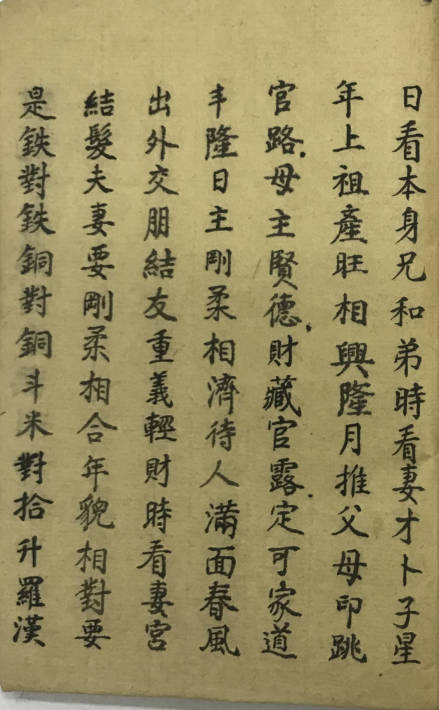 日看本身兄和弟時看妻才卜子星
年上祖產旺相興隆月推父母印跳
官路.母主賢德,財藏官露.定可家道
丰隆日主剛柔相濟待人滿面春風
出外交朋結友重義輕財時看妻宮
結髮夫妻要剛柔相合年貌相對要
是鉄對鉄銅對銅斗米對拾升羅漢